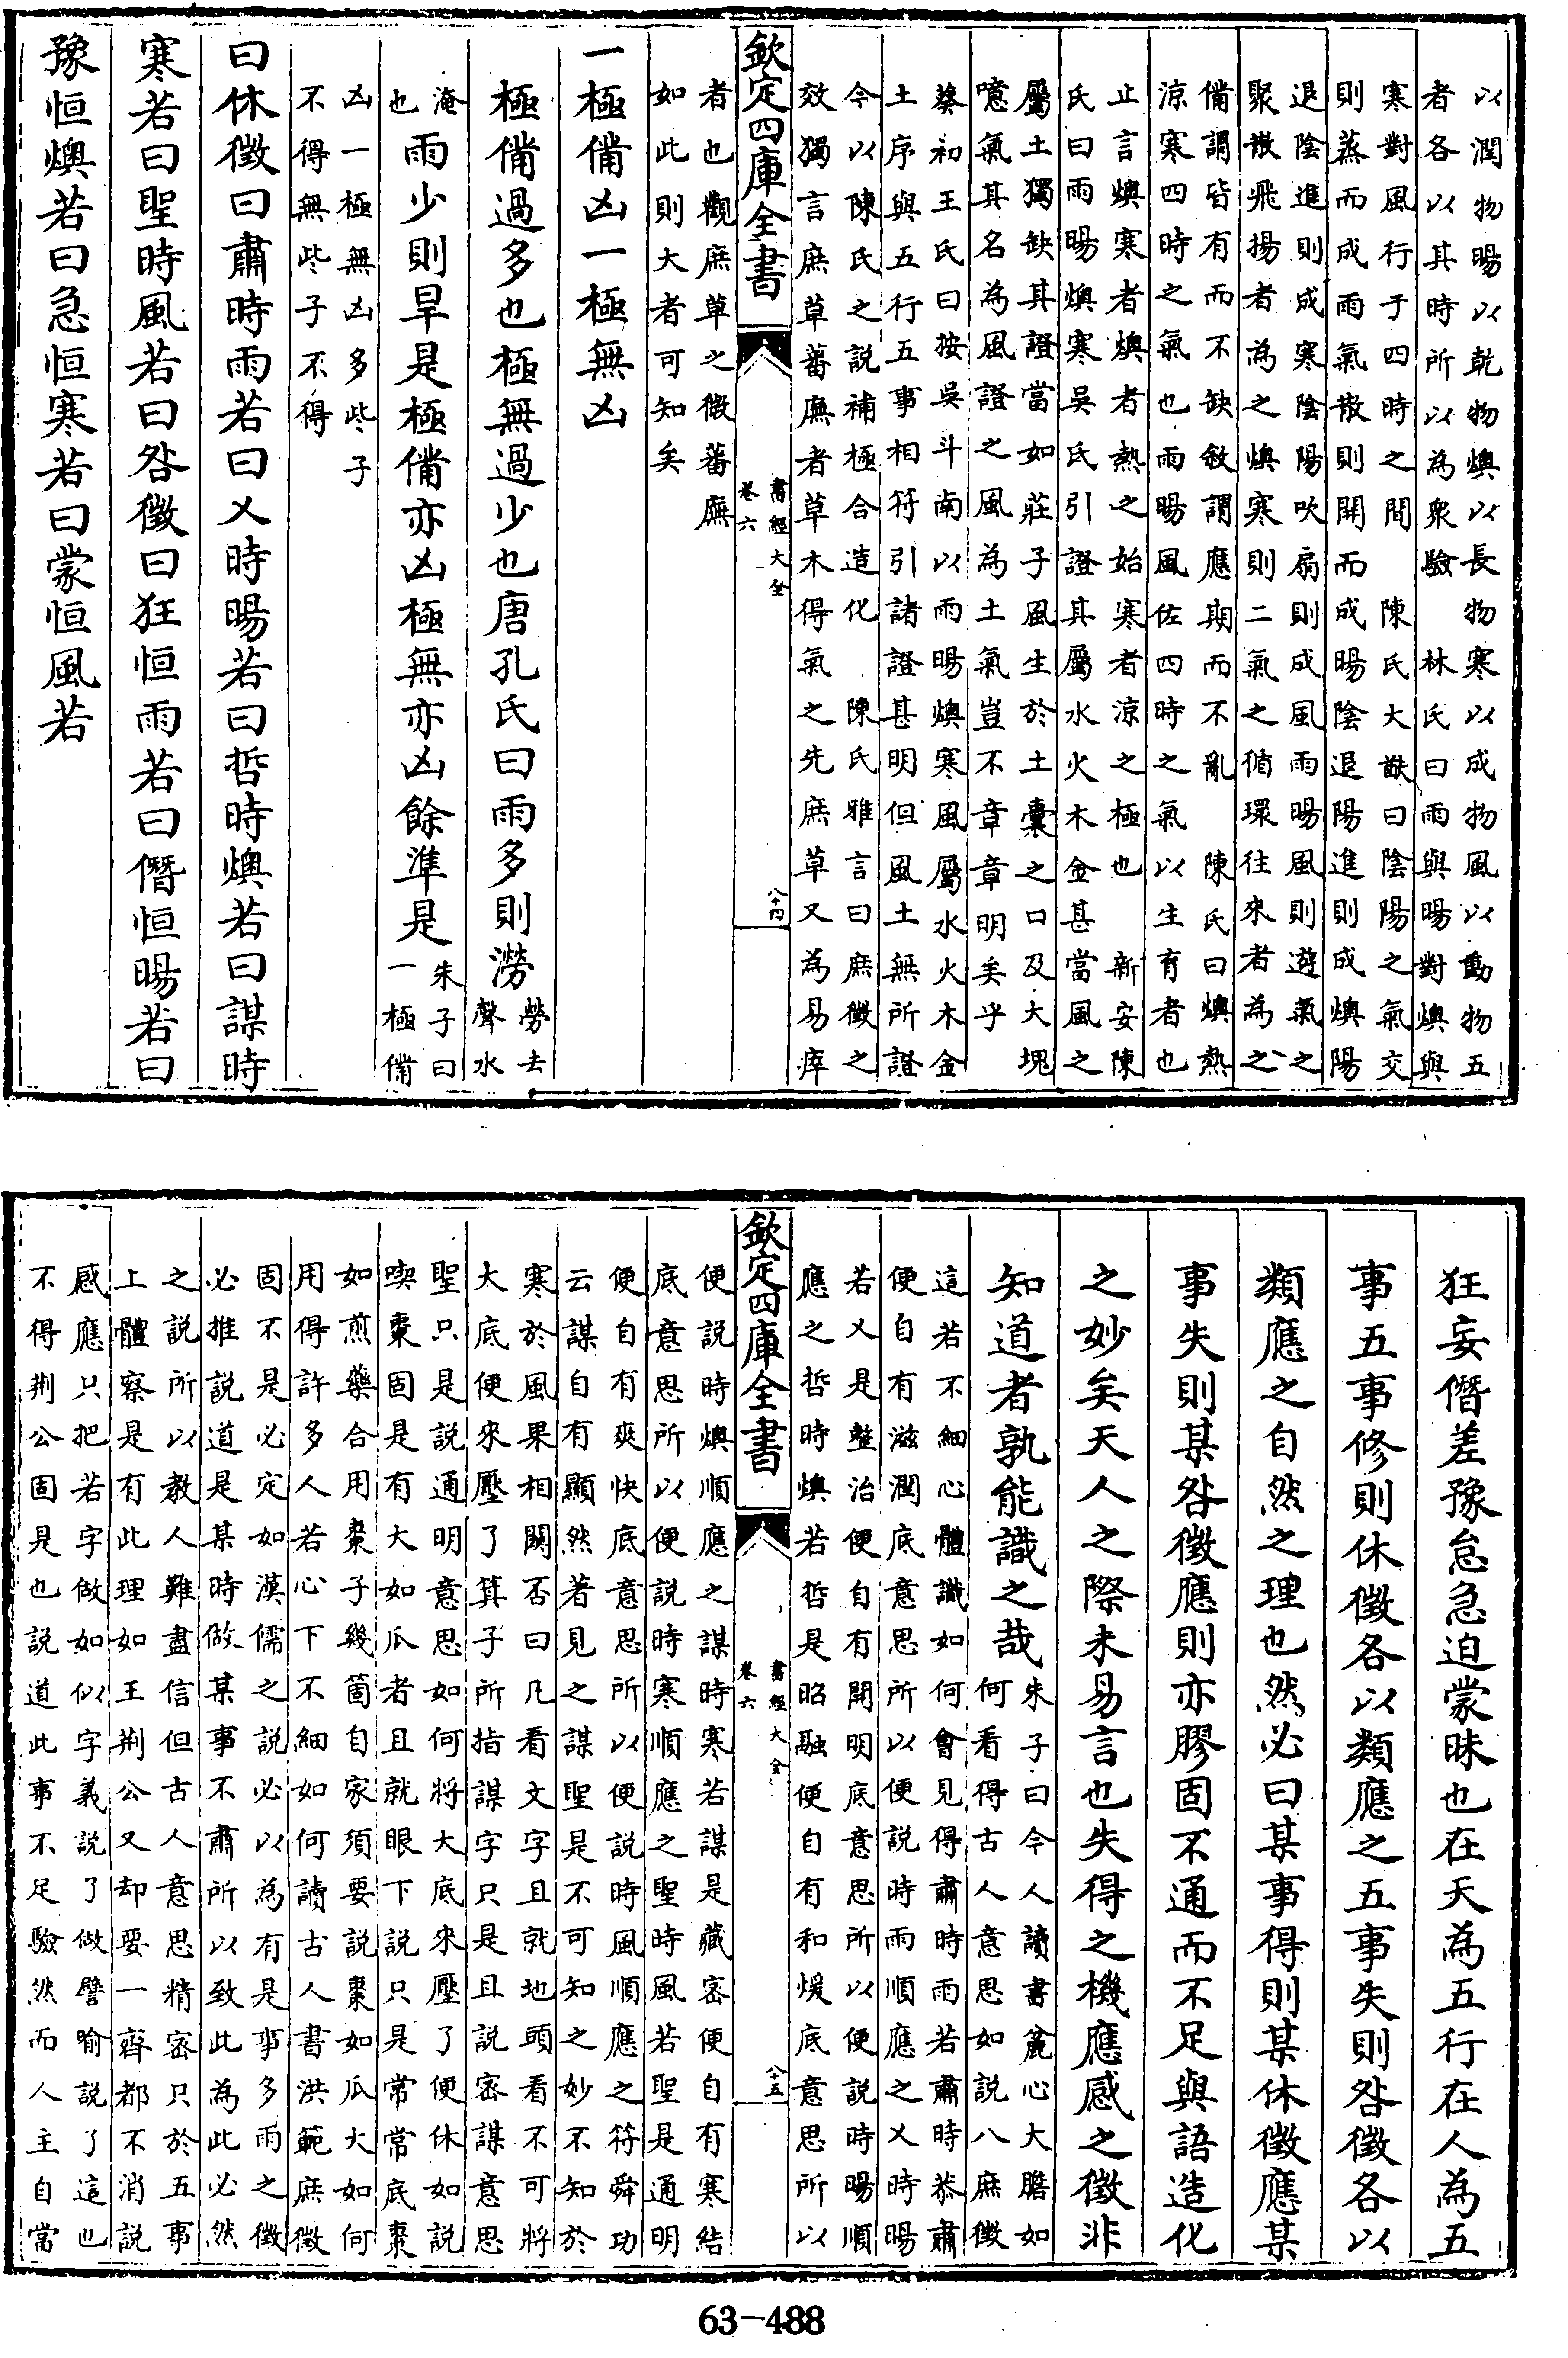 以潤物暘以乾物燠以長物寒以成物風以動物五
者各以其時所以為衆驗　林氏曰雨與暘對燠與
寒對風行于四時之間　陳氏大猷曰陰陽之氣交
則蒸而成雨氣散則開而成暘陰退陽進則成燠陽
退陰進則成寒陰陽吹扇則成風雨暘風則遊氣之
聚散飛揚者為之燠寒則二氣之循環往來者為之
備謂皆有而不缺敘謂應期而不亂　陳氏曰燠熱
涼寒四時之氣也雨暘風佐四時之氣以生育者也
止言燠寒者燠者熱之始寒者涼之極也　新安陳
氏曰雨暘燠寒吳氏引證其屬水火木金甚當風之
屬土獨缺其證當如莊子風生於土囊之口及大塊
噫氣其名為風證之風為土氣豈不章章明矣乎
蔡初王氏曰按吳斗南以雨暘燠寒風屬水火木金
土序與五行五事相符引諸證甚明但風土無所證
今以陳氏之說補極合造化　陳氏雅言曰庶徵之
效獨言庶草蕃廡者草木得氣之先庶草又為易瘁
欽定四庫全書
書經大全
卷六
八十四
者也觀庶草之徵蕃廡
如此則大者可知矣
一極備凶一極無凶
極備過多也極無過少也唐孔氏曰雨多則澇勞去聲水
淹也雨少則旱是極備亦凶極無亦凶餘準是朱子曰一極備
凶一極無凶多些子
不得無些子不得
曰休徵曰肅時雨若曰乂時暘若曰哲時燠若曰謀時
寒若曰聖時風若曰咎徵曰狂恒雨若曰僭恒暘若曰
豫恒燠若曰急恒寒若曰蒙恒風若
狂妄僭差豫怠急迫蒙昧也在天為五行在人為五
事五事修則休徵各以類應之五事失則咎徵各以
類應之自然之理也然必曰某事得則某休徵應某
事失則某咎徵應則亦膠固不通而不足與語造化
之妙矣天人之際未易言也失得之機應感之徵非
知道者孰能識之哉朱子曰今人讀書麄心大膽如何看得古人意思如說八庶徵
這若不細心體識如何會見得肅時雨若肅時恭肅
便自有滋潤底意思所以便說時雨順應之乂時暘
若乂是整治便自有開明底意思所以便說時暘順
應之哲時燠若哲是昭融便自有和煖底意思所以
欽定四庫全書
書經大全
卷六
八十五
便說時燠順應之謀時寒若謀是藏密便自有寒結
底意思所以便說時寒順應之聖時風若聖是通明
便自有爽快底意思所以便說時風順應之符舜功
云謀自有顯然著見之謀聖是不可知之妙不知於
寒於風果相關否曰凡看文字且就地頭看不可將
大底便來壓了箕子所指謀字只是且說密謀意思
聖只是說通明意思如何將大底來壓了便休如說
喫棗固是有大如瓜者且就眼下說只是常常底棗
如煎藥合用棗子幾箇自家須要說棗如瓜大如何
用得許多人若心下不細如何讀古人書洪範庶徵
固不是必定如漢儒之說必以為有是事多雨之徵
必推說道是某時做某事不肅所以致此為此必然
之說所以教人難盡信但古人意思精密只於五事
上體察是有此理如王荊公又却要一齊都不消說
感應只把若字做如似字義說了做譬喻說了這也
不得荊公固是也說道此事不足驗然而人主自當
63-488